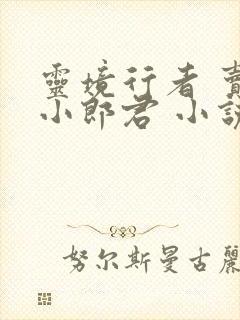 靈境行者 賣
小郎君 小說
努尔斯曼古麗